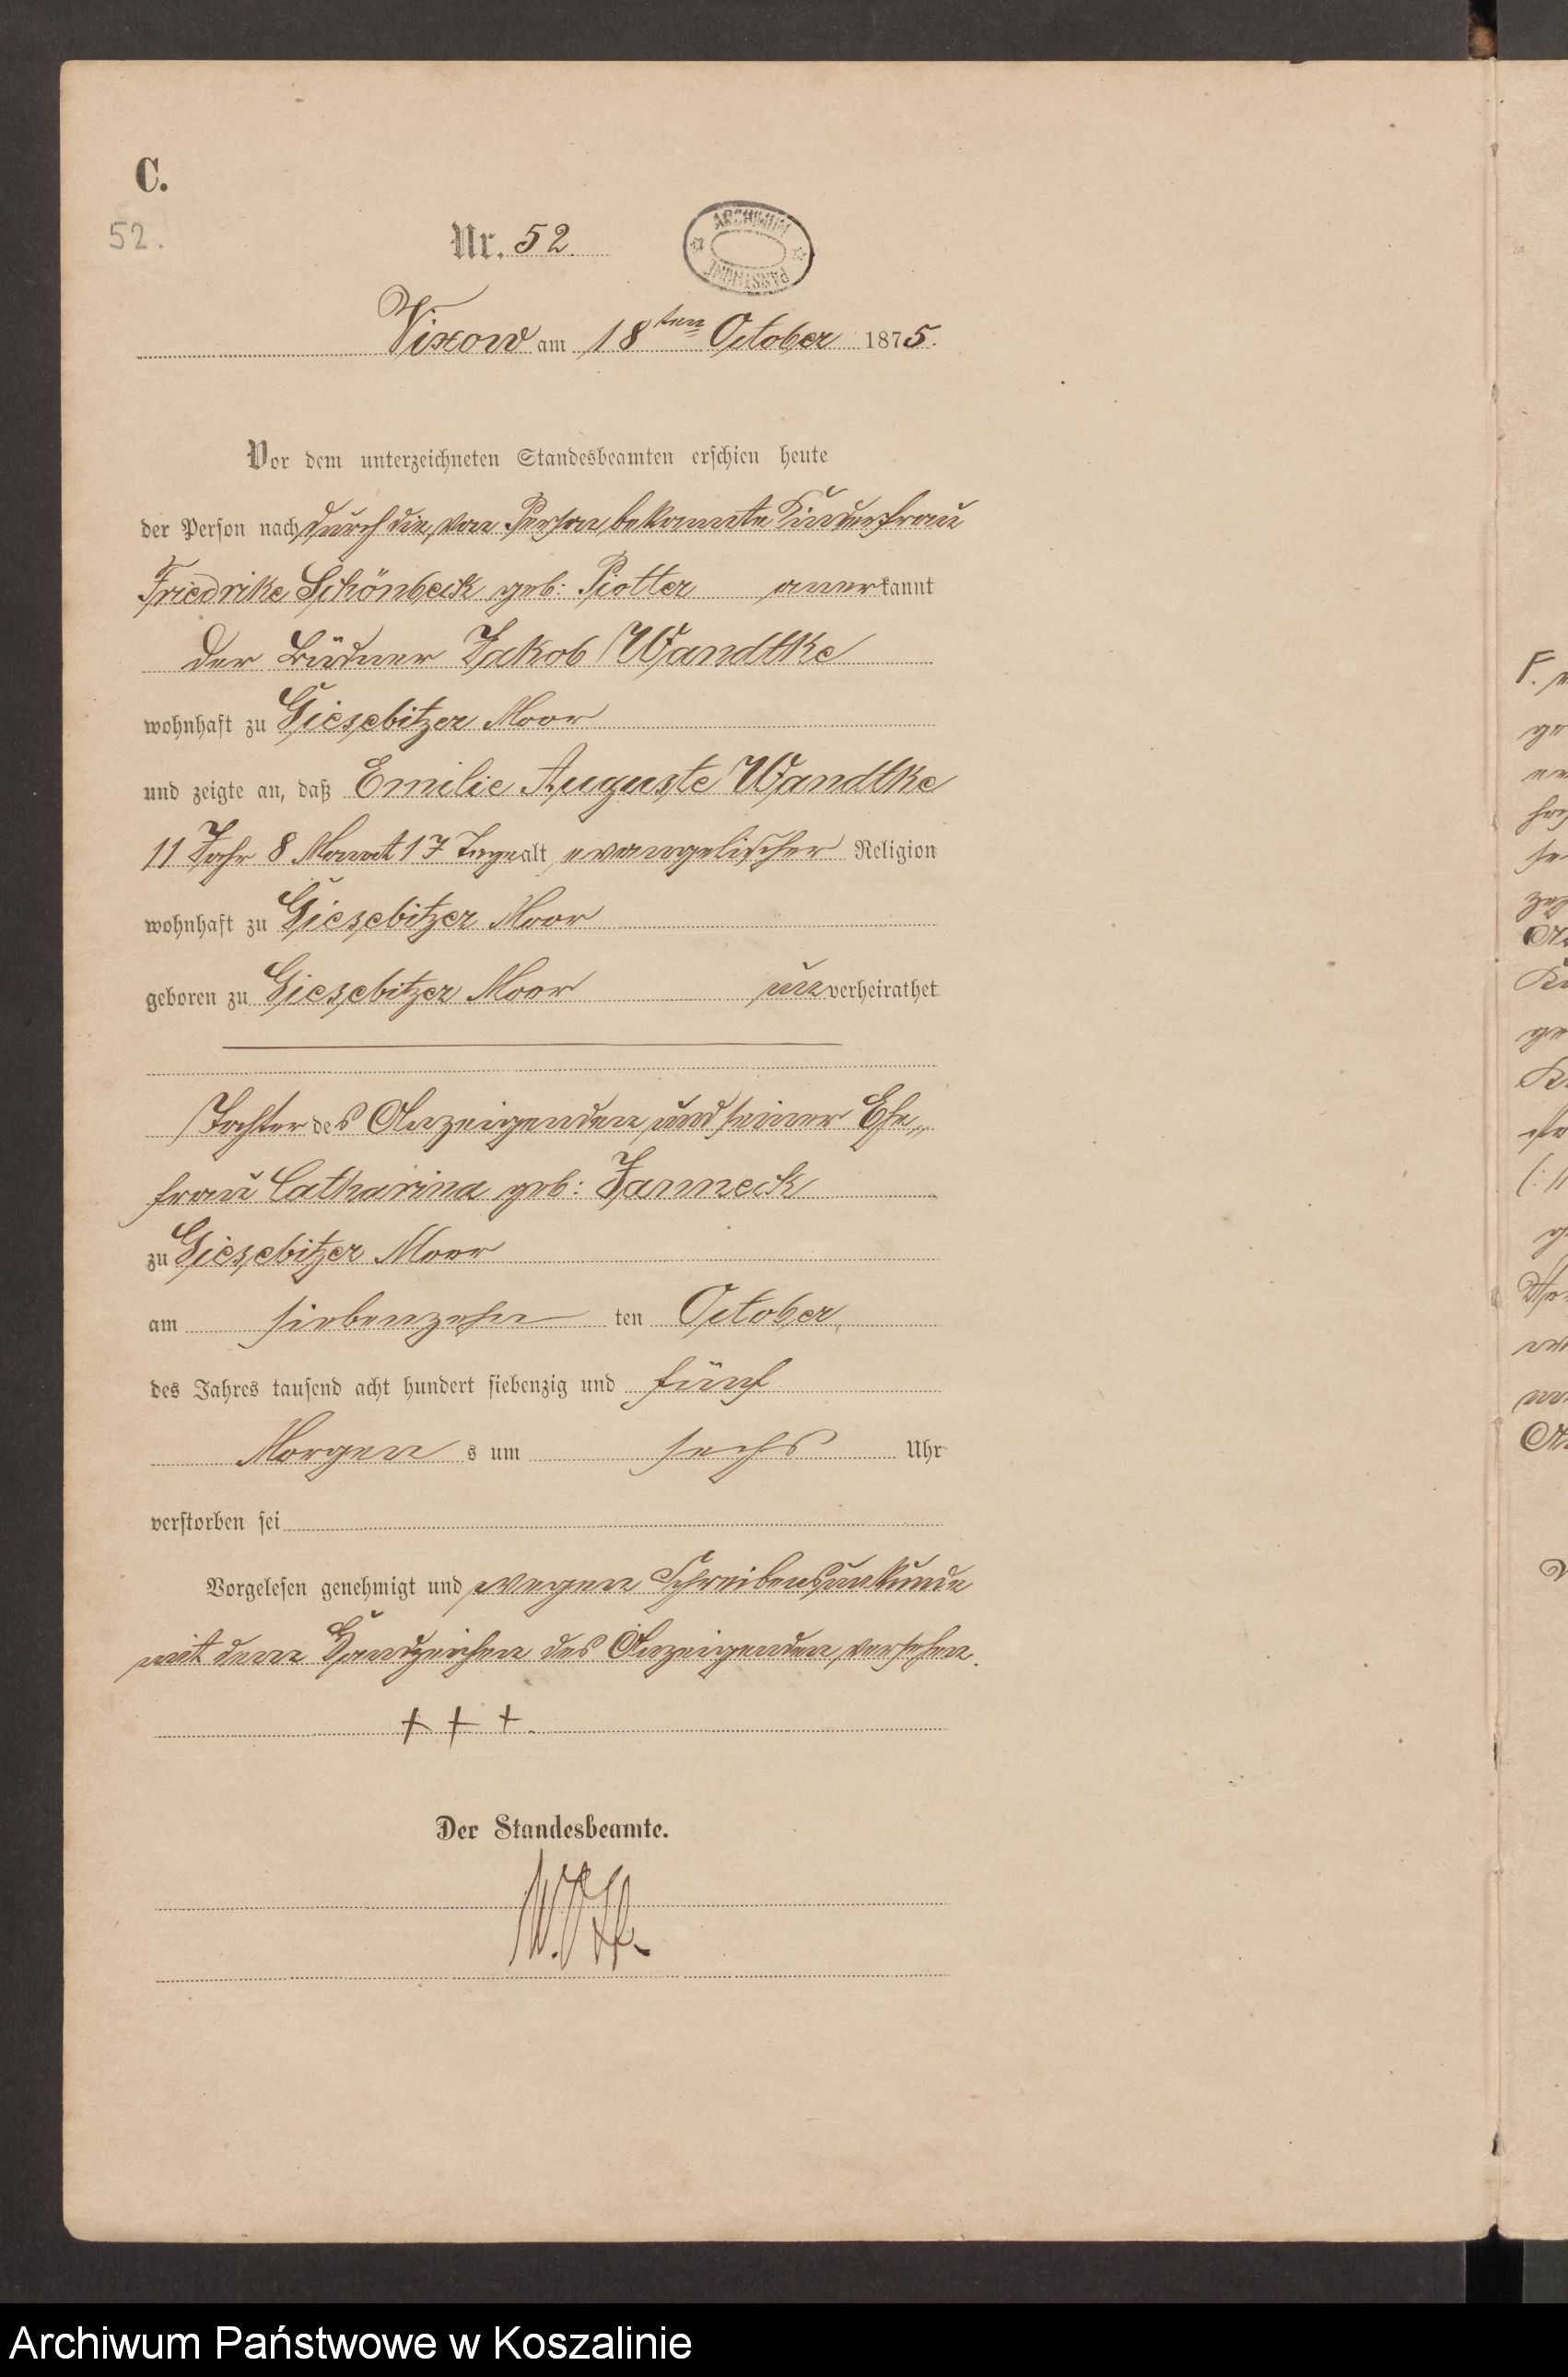 C.
52.
Nr. 52.
ARCHIWUM PAŃSTWOWE
Vixow am 18ten October 1875.
Vor dem unterzeichneten Standesbeamten erschien heute
der Person nach durch die, von Person bekannte Kinderfrau
Friedrike Schönbeck geb: Piotter anerkannt
der Büdner Jakob Wandtke
wohnhaft zu Giesebitzer Moor
und zeigte an, daß Emilie Auguste Wandtke
11 Jahr 8 Monat 17 Tage alt, evangelischer Religion
wohnhaft zu Giesebitzer Moor
geboren zu Giesebitzer Moor unverheirathet
Tochter des Anzeigenden und seiner Ehe„
frau Catharina geb: Janneck
zu Giesebitzer Moor
am siebenzehn ten October,
des Jahres tausend acht hundert siebenzig und fünf
Morgen s um sechs Uhr
verstorben sei
Vorgelesen genehmigt und wegen Schreibensunkunde
mit dem Handzeichen des Anzeigenden versehen.
+ + +.
Der Standesbeamte.
F.
ge
Archiwum Państwowe w Koszalinie